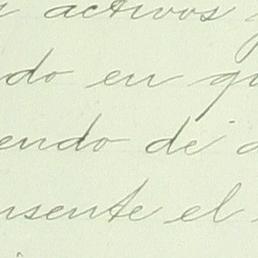 activos
do en qu
endo de
nsente el